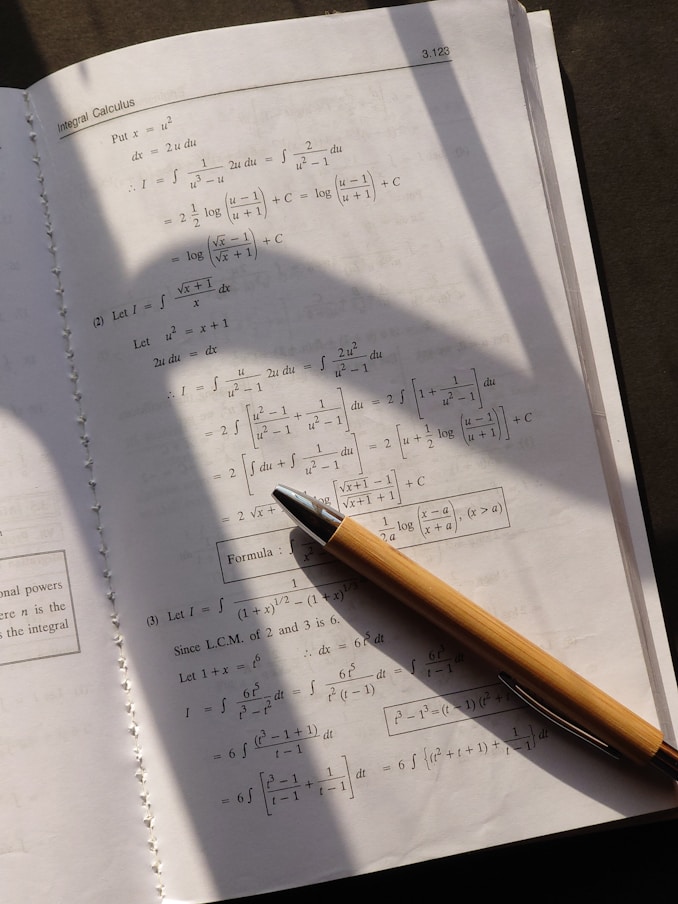 3.123
Integral Calculus
Put x = u²
dx = 2u du
∴ I = ∫ 1/(u³ − u) 2u du = ∫ 2/(u² − 1) du
= 2 1/2 log ((u − 1)/(u + 1)) + C = log ((u − 1)/(u + 1)) + C
= log ((√x − 1)/(√x + 1)) + C
(2) Let I = ∫ √(x + 1)/x dx
Let u² = x + 1
2u du = dx
∴ I = ∫ u/(u² − 1) 2u du = ∫ 2u²/(u² − 1) du
= 2 ∫ [(u² − 1)/(u² − 1) + 1/(u² − 1)] du = 2 ∫ [1 + 1/(u² − 1)] du
= 2 [∫ du + ∫ 1/(u² − 1) du] = 2 [u + 1/2 log ((u − 1)/(u + 1))] + C
= 2 √x + log [(√(x+1) − 1)/(√(x+1) + 1)] + C
Formula : ∫ 1/2a log ((x − a)/(x + a)), (x > a)
(3) Let I = ∫ 1/((1 + x)^1/2 − (1 + x)^1/3)
Since L.C.M. of 2 and 3 is 6.
Let 1 + x = t⁶ ∴ dx = 6t⁵ dt
I = ∫ 6t⁵/(t³ − t²) dt = ∫ 6t⁵/(t² (t − 1)) dt = ∫ 6t³/(t − 1)
= 6 ∫ (t³ − 1 + 1)/(t − 1) dt
t³ − 1³ = (t − 1) (t² +
= 6 ∫ [(t³ − 1)/(t − 1) + 1/(t − 1)] dt = 6 ∫ {(t² + t + 1) + 1/(t − 1)} dt
onal powers
ere n is the
s the integral